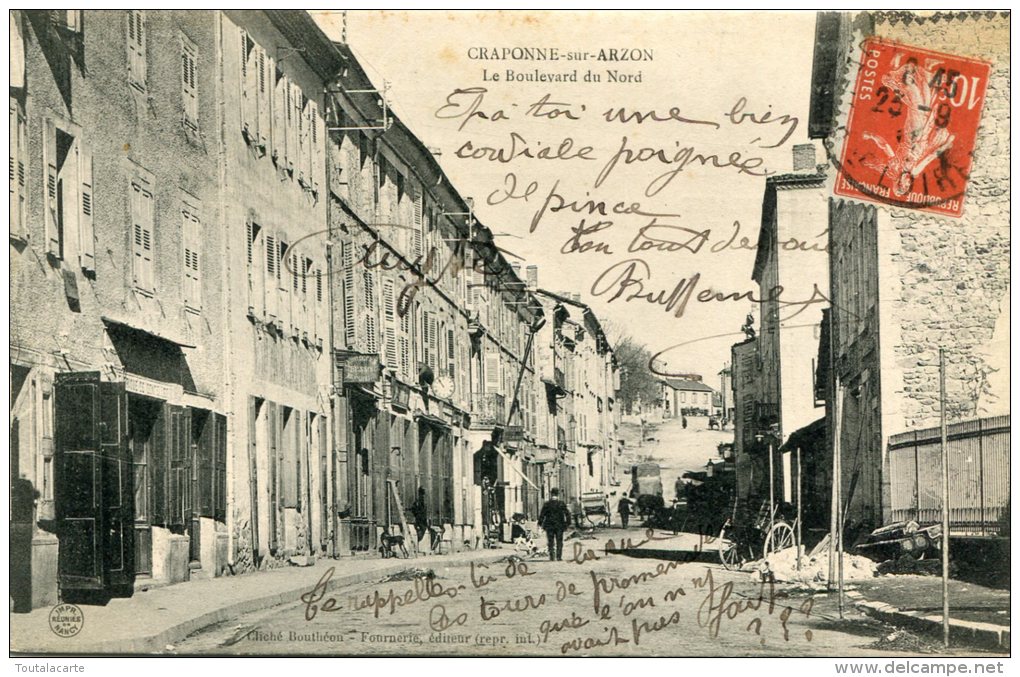 CRAPONNE-sur-ARZON
Le Boulevard du Nord
POSTES
10c
6 45
23 -9
REPUBLIQUE FRANÇAISE
Et à toi une bien
cordiale poignée
de pince
Ton tout dévoué
Buffeme
Te rappelles-tu de la rue
Pas tours de promenade
que l'on n'y
avait pas fait ???
IMPR.
RÉUNIES
NANCY
Cliché Bouthéon - Fournerie, éditeur (repr. int.)
Toutalacarte
www.delcampe.net